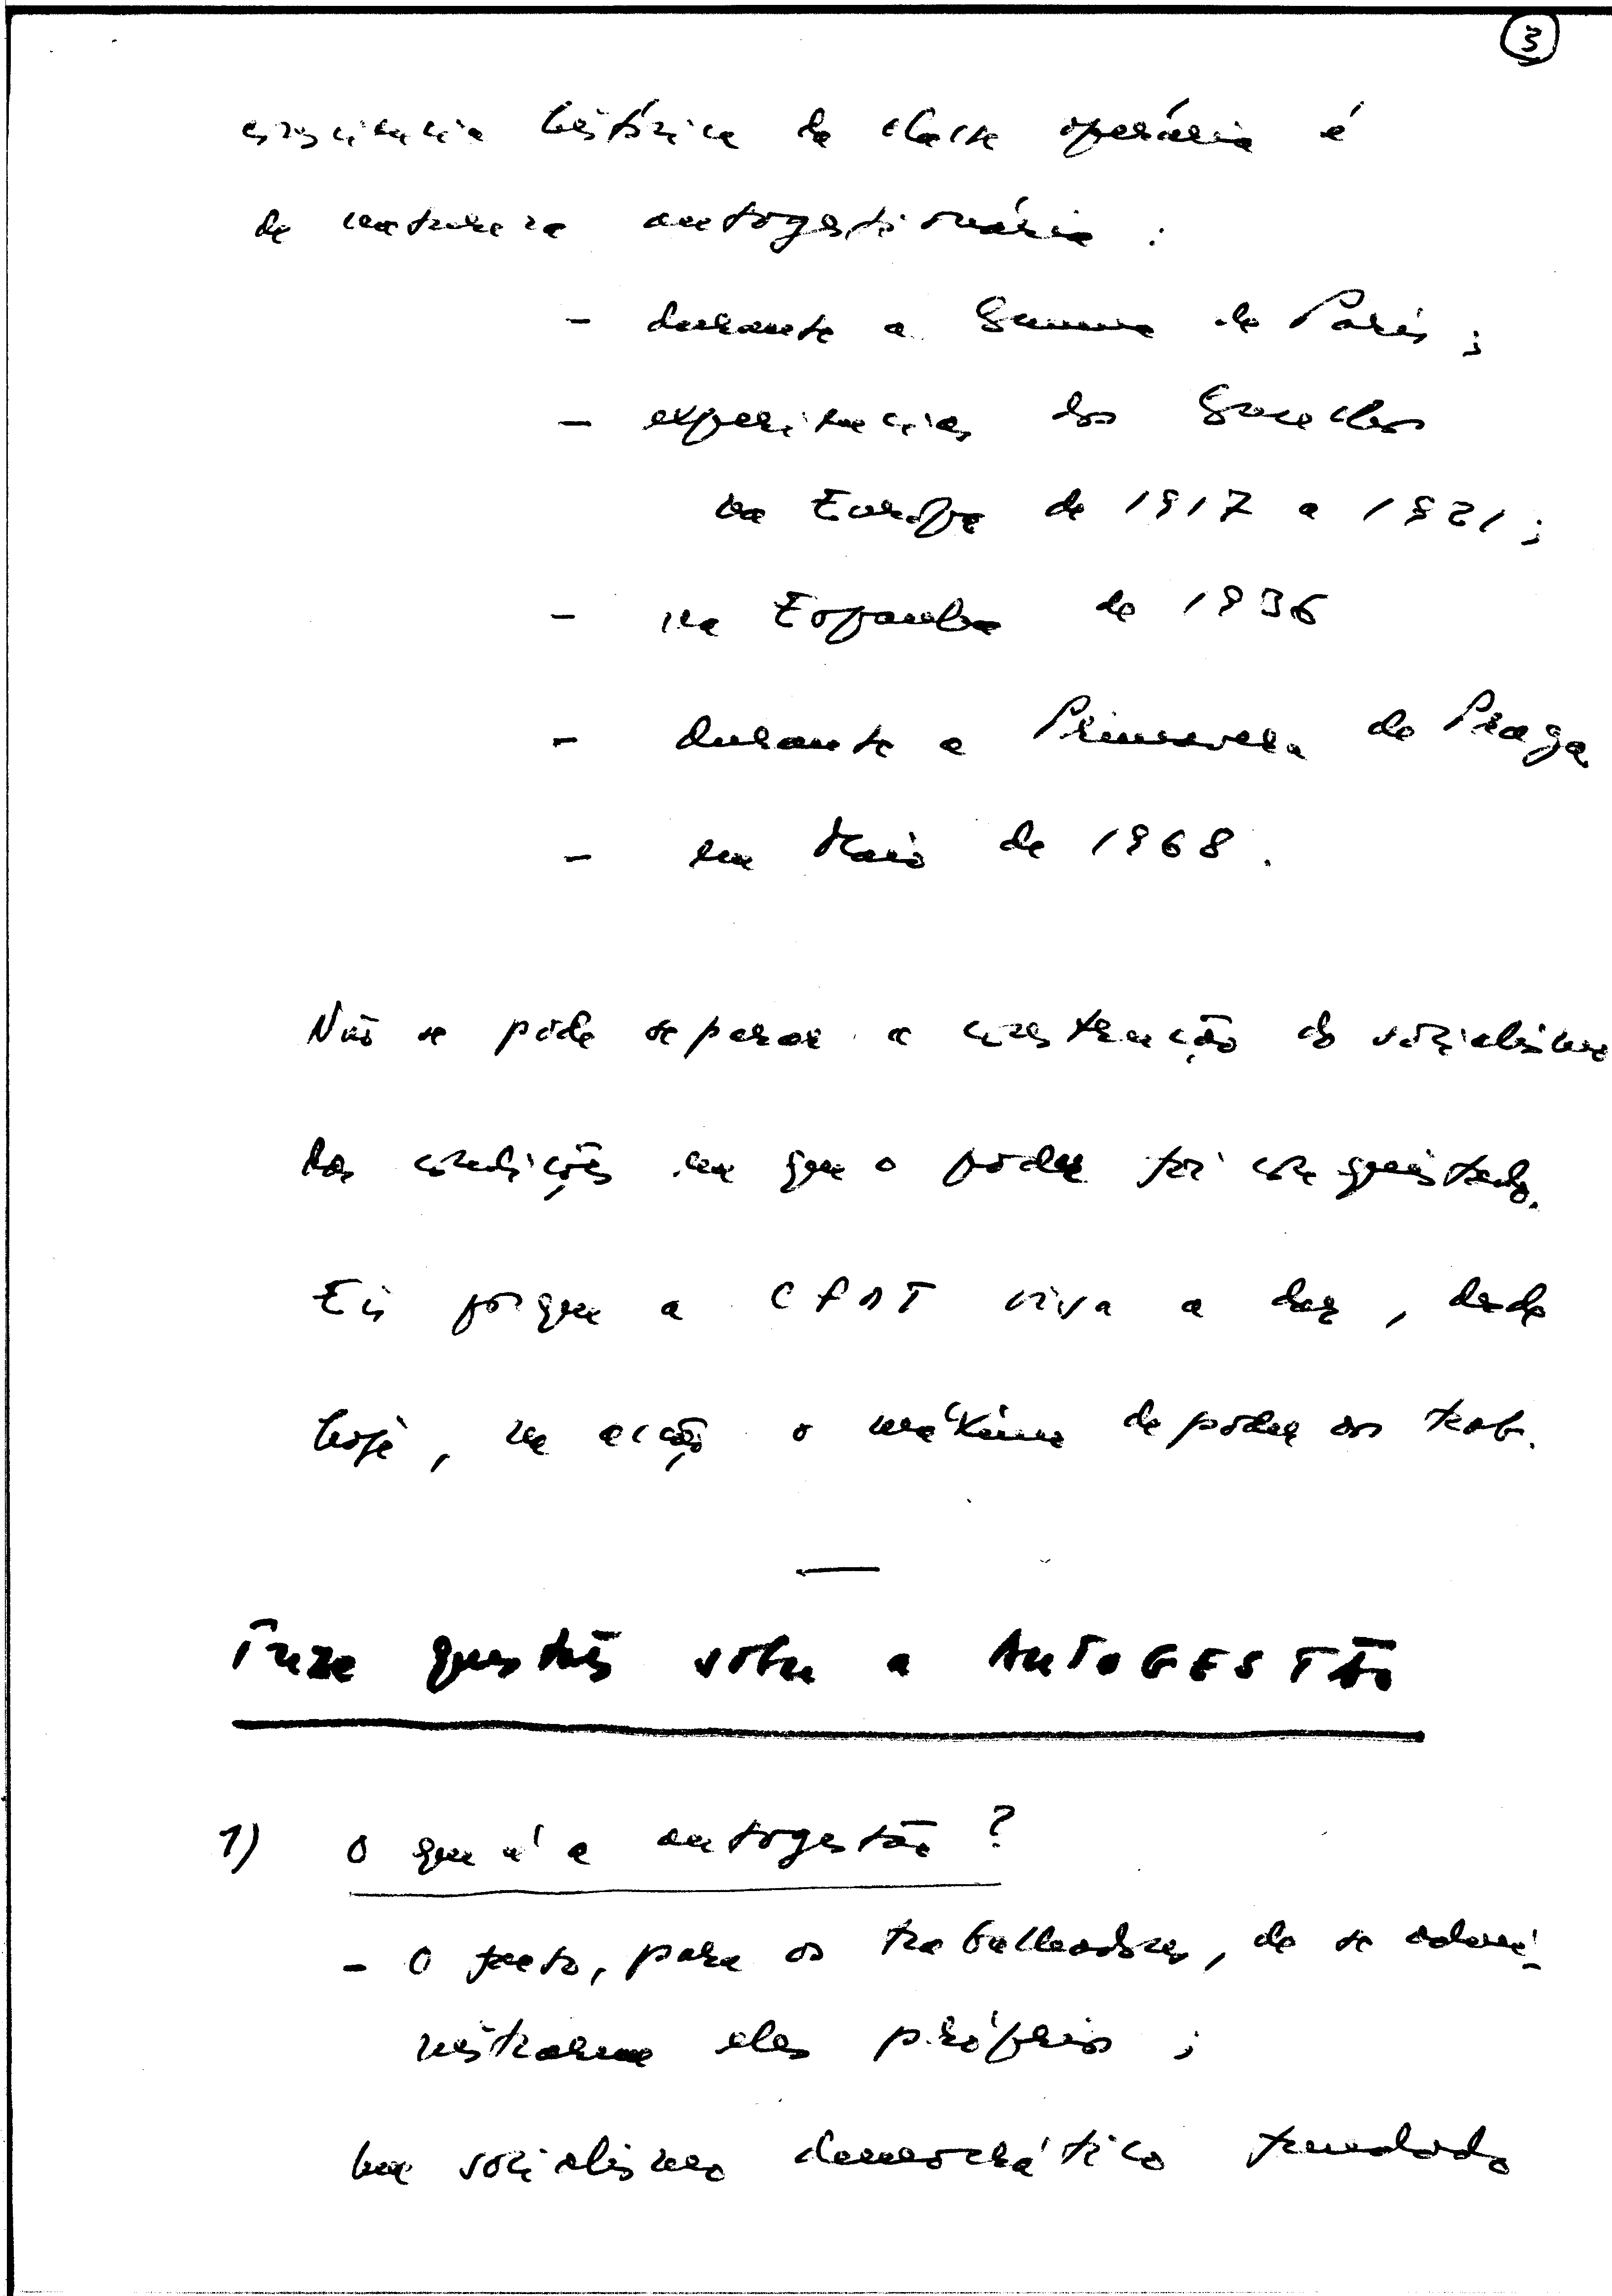 3
consciência histórica da classe operária é
de natureza autogestionária :
- durante a Comuna de Paris ;
- experiências dos Conselhos
na Europa de 1917 a 1921 ;
- na Espanha de 1936
- durante a Primavera de Praga
- em Maio de 1968 .
Não se pode separar a construção do socialismo
das condições em que o poder foi conquistado.
Eis porque a CFDT visa a dar , desde
hoje , na acção o máximo de poder aos trab.
Treze questões sobre a AUTOGESTÃO
1) O que é a autogestão ?
- O facto, para os trabalhadores, de se admi-
nistrarem eles próprios ;
um socialismo democrático fundado